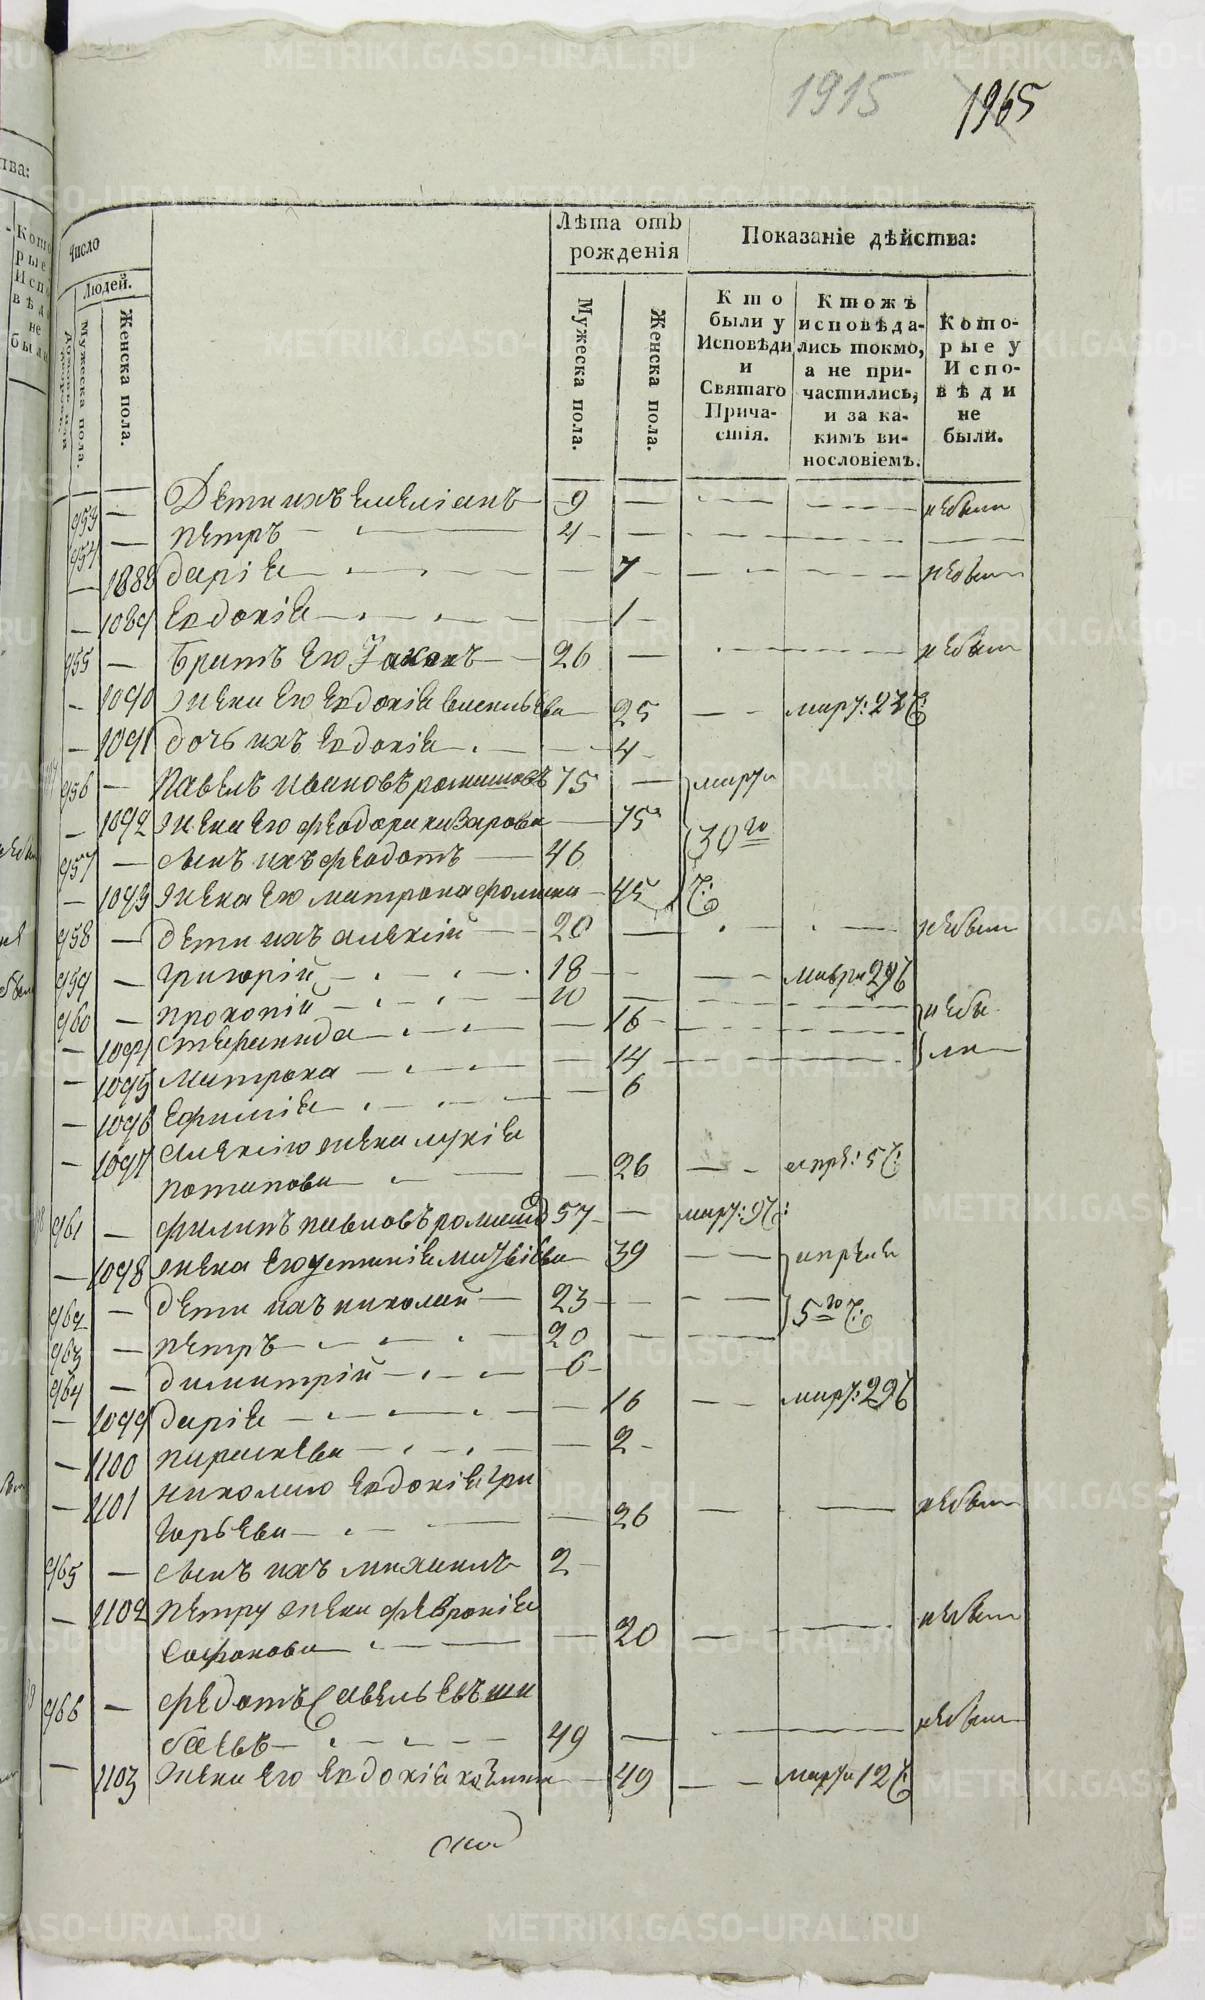 1915 1965
Число
Людей.
Мужеска пола.
Женска пола.
Лѣта отъ рожденія
Мужеска пола.
Женска пола.
Показаніе дѣйства:
Кто были у Исповѣди и Святаго Причастія.
Ктожъ исповѣдались токмо, а не причастились, и за какимъ винословіемъ.
Которые у Исповѣди не были.
953 — Дети ихъ Емеліанъ 9 — небыли
954 — Петръ 4 —
— 1088 Дарія — 7 небыли
— 1089 Евдокія — 1
955 — Братъ Его 26 — небыл
— 1090 Жена Его Евдокія Васильева — 25 мар: 27
— 1091 дочь ихъ Евдокія — 4
956 — Павелъ Ивановъ 75 — марта
— 1092 Жена Его Феодора — 75 30го
957 — сынъ ихъ Феодотъ 46
— 1093 Жена Его Матрона Фомина — 45 Ч:
958 — дети ихъ Алексій 20 — небыл
959 — Григорій 18 — марта 29
960 — Прокопій 10 — небы
— 1094 Стефанида — 16
— 1095 Матрона — 14 ли
— 1096 Ефимія — 6
— 1097 Алексію жена Лукія
Потапова — 26 апре: 5
961 — Филипъ Павловъ 57 — мар: 9
— 1098 жена Его Устинія Матвіева — 39 апреля
962 — Дети ихъ Николай 23 — 5го
963 — Петръ 20 —
964 — Димитрій 6
— 1099 Дарія — 16 мар: 29
— 1100 Параскева — 2
— 1101 Николаю Евдокія Гри
горьева — 26 небыл
965 — сынъ ихъ Михаилъ 2
— 1102 Петру жена Февронія
Сафонова — 20 небыл
966 — Федотъ Савельевъ ша
баевъ 49 — небыл
— 1103 Жена Его Евдокія — 49 марта 12